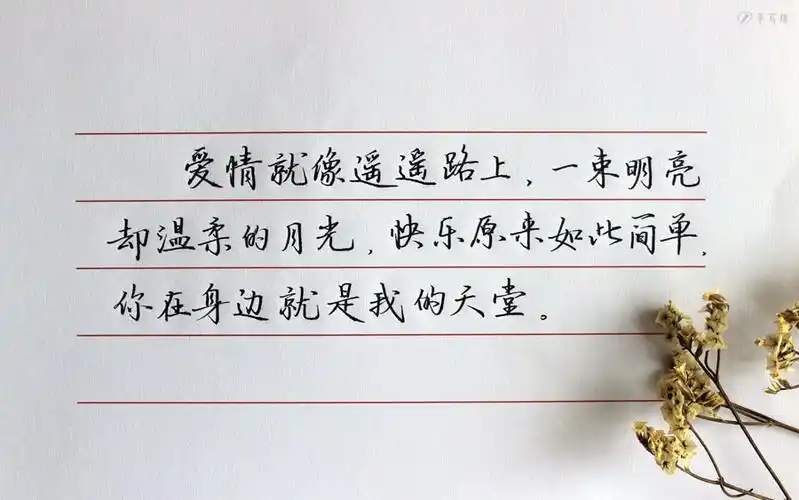 爱情就像遥遥路上，一束明亮
却温柔的月光，快乐原来如此简单，
你在身边就是我的天堂。